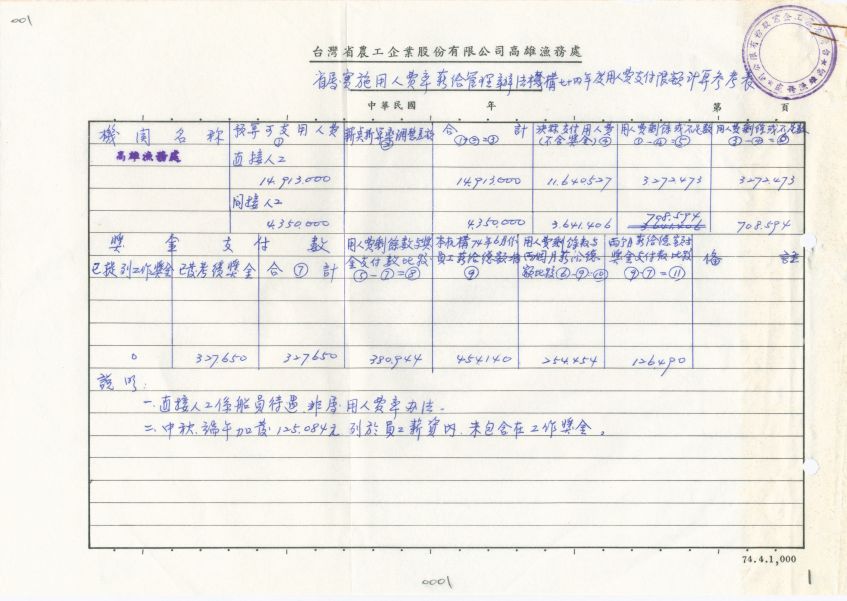 001
台灣省農工企業股份有限公司高雄漁務處
省屬實施用人費率薪給管理辦法機構七十四年度用人費支付限額計算參考表
中華民國 年 第 頁
機關名稱 預算可支用人費① 合計 ①+②=③ 決算支付用人費(不含獎金)④ 用人費剩餘或不足數 ①-④=⑤ 用人費剩餘或不足數 ③-④=⑥
高雄漁務處 直接人工
14.913.000 14.913.000 11.640527 3272.473 3272.473
間接人工
4.350.000 4.350.000 3.641.406 708.594 708.594
獎金支付數 用人費剩餘數與獎金支付數比較 ⑤-⑦=⑧ 本機構74年6月份員工薪給總數 ⑨ 用人費剩餘數與兩個月薪給總額比較 ⑥-⑨=⑩ 兩個月薪給總額支付獎金支付數比較 ⑨-⑦=⑪ 備註
已提列工作獎金 已發考績獎金 合計⑦
0 327650 327650 380.944 454140 254.454 126490
說明:
一.直接人工係船員待遇,非屬用人費率办法。
二.中秋.端午加發125.084元列於員工薪資內,未包含在工作獎金。
74.4.1,000
0001
1